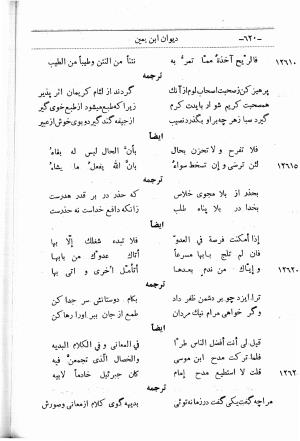 -٦٢٠-
دیوان ابن یمین
١٣٦١٠ فالریح آخذة ممّا تمرّ به نتناً من النتن وطیباً من الطیب
ترجمه
پرهیز کن ز صحبت اصحاب لوم از آنک گردند از لئام کریمان اثر پذیر
همصحبت کریم شو ار بایدت کرم زیرا که طبع میشود از طبع خوی گیر
گیرد صبا زهر چه برو بگذرد نصیب از جیفه گند گیرد و بوی خوش از عبیر
ایضاً
فلا تفرح و لا تحزن بحال بأن الحال لیس له بقاء
١٣٦١٥ لئن ترضی و إن تسخط سواء بأن الله یفعل ما یشاء
ترجمه
بحذر از بلا مجوی خلاص که حذر در بر قدر هدرست
بخدا در بلا پناه طلب زانکه دافع خداست نه حذرست
ایضاً
إذا أمکنت فرصة فی العدوّ فلا تبده شغلك إلّا بها
فان لم تلج بابها مسرعاً أتاك عدوّك من بابها
١٣٦٢٠ و إیّاك من ندم بعدها أتأمل اخری و انی بها
ترجمه
ترا ایزد چو بر دشمن ظفر داد بکام دوستانش سر جدا کن
و گر خواهی مرام نیك مردان طمع از جان ببر او را رها کن
ایضاً
قیل لی أنت أفضل الناس طرّاً فی المعانی و فی الکلام البدیه
فلما ترکت مدح ابن موسی والخصال الّذی تجمعن فیه
١٣٦٢٥ قلت لا استطیع مدح إمام کان جبرئیل خادماً لابیه
ترجمه
مرا چه گفت یکی گفت در زمانه توئی بدیهه گوی کلام از معانی و صورش